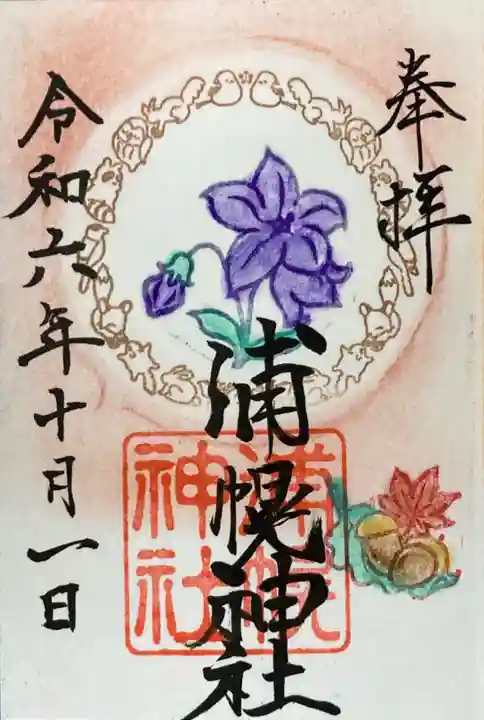 奉拝
浦幌神社
浦幌
神社
令和六年十月一日